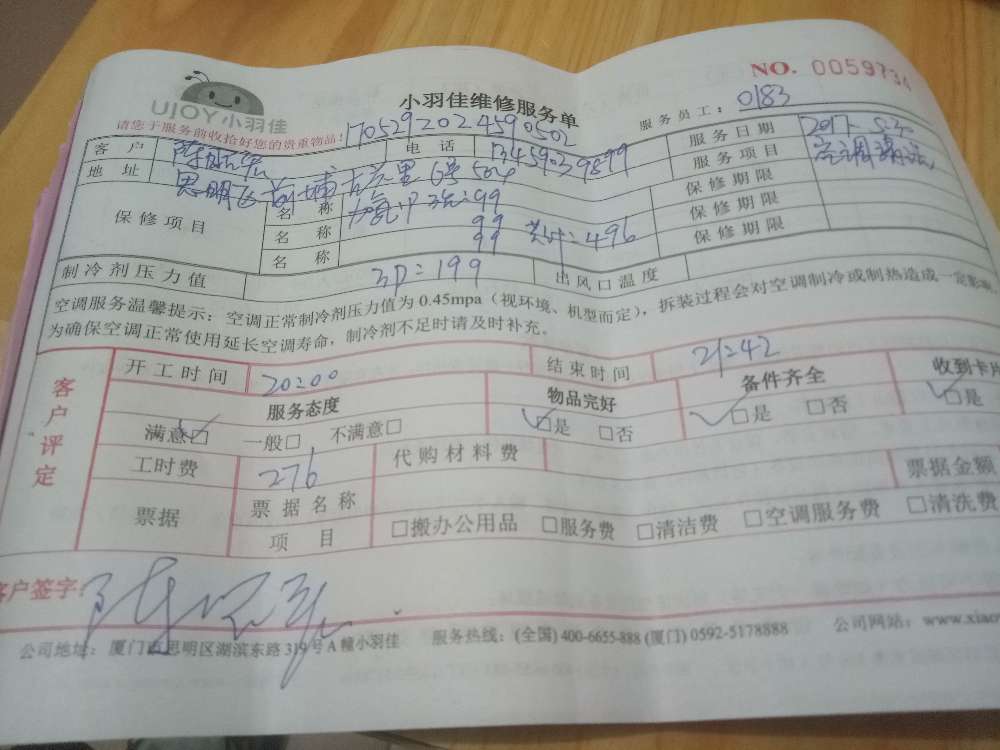 NO. 0059734
UJOY小羽佳
小羽佳维修服务单
服务员工：0183
请您于服务前收拾好您的贵重物品！1705292024590502
客户 陈 电话 13459039899 服务日期 2017.5.30
地址 思明区前埔古兴里6号504 服务项目 空调清洗
保修项目 名称 99 保修期限
名称 99 共计：496 保修期限
名称 99 保修期限
制冷剂压力值 3P：199 出风口温度
空调服务温馨提示：空调正常制冷剂压力值为0.45mpa（视环境、机型而定），拆装过程会对空调制冷或制热造成一定影响
为确保空调正常使用延长空调寿命，制冷剂不足时请及时补充。
客户评定
开工时间 20:00 结束时间 21:42
服务态度 物品完好 备件齐全 收到卡片
满意☑ 一般□，不满意□ ☑是 □否 ☑是 □否 ☑是
工时费 276 代购材料费
票据 票据名称 票据金额
项目 □搬办公用品 □服务费 □清洁费 □空调服务费 □清洗费
客户签字：陈
公司地址：厦门市思明区湖滨东路319号A幢小羽佳 服务热线：(全国) 400-6655-888 (厦门) 0592-5178888 公司网站：www.xiao